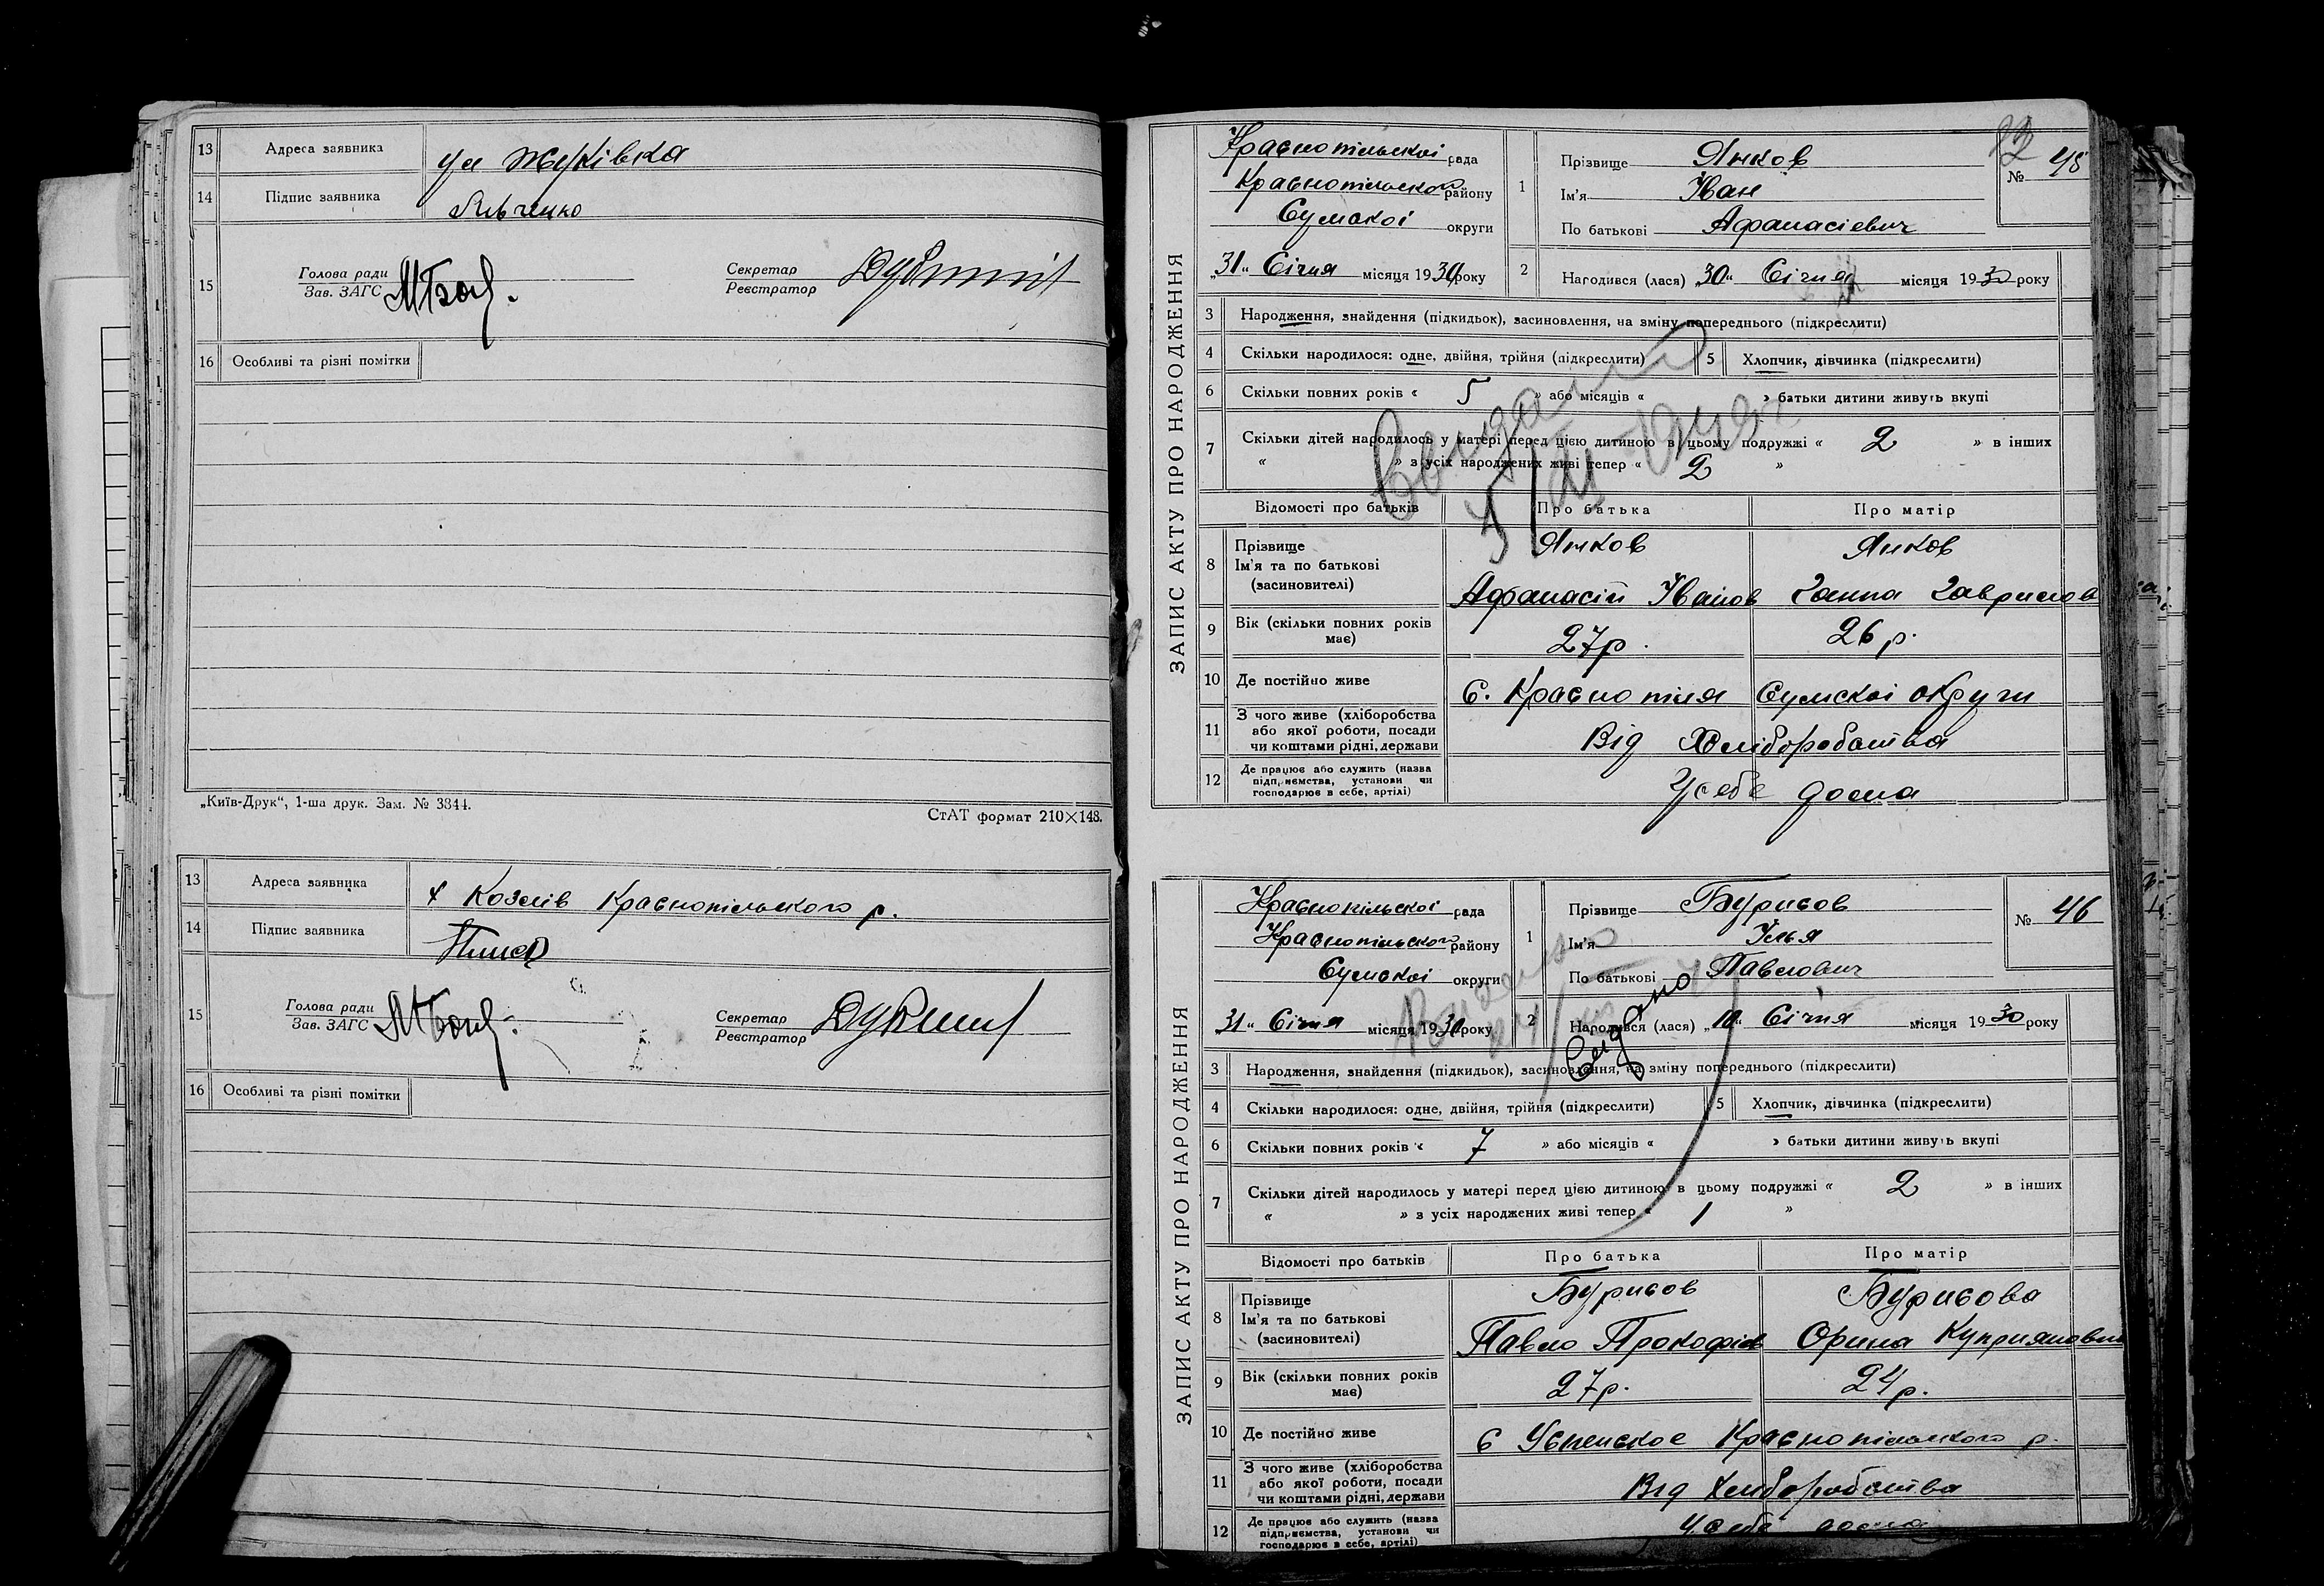 13 Адреса заявника ул Жуківка
14 Підпис заявника
15 Голова ради
Зав. ЗАГС
Секретар
Реєстратор
16 Особливі та різні помітки
„Київ-Друк“, 1-ша друк. Зам. № 3344.
СтАТ формат 210×148.
13 Адреса заявника х Козлів Краснопільського р.
14 Підпис заявника
15 Голова ради
Зав. ЗАГС
Секретар
Реєстратор
16 Особливі та різні помітки
ЗАПИС АКТУ ПРО НАРОДЖЕННЯ
Краснопільскоі рада
Краснопільского району
Сумскоі округи
„31“ Січня місяця 1930 року
1 Прізвище Янков
Ім'я Іван
По батькові Афанасієвич
№ 45
2 Народився (лася) „30“ Січня місяця 1930 року
3 Народження, знайдення (підкидьок), засиновлення, на зміну попереднього (підкреслити)
4 Скільки народилося: одне, двійня, трійня (підкреслити) 5 Хлопчик, дівчинка (підкреслити)
6 Скільки повних років « 5 » або місяців « » батьки дитини живуть вкупі
7 Скільки дітей народилось у матері перед цією дитиною в цьому подружжі « 2 » в інших
« » з усіх народжених живі тепер « 2 »
Відомості про батьків Про батька Про матір
8 Прізвище
Ім'я та по батькові
(засиновителі)
Янков Янков
Афанасій Іванов Ганна Гаврилов
9 Вік (скільки повних років має) 27р. 26р.
10 Де постійно живе С. Краснопілля Сумскоі округи
11 З чого живе (хліборобства
або якої роботи, посади
чи коштами рідні, держави
Від Хліборобства
12 Де працює або служить (назва
підприємства, установи чи
господарює в себе, артілі)
У себе дома
ЗАПИС АКТУ ПРО НАРОДЖЕННЯ
Краснопільскоі рада
Краснопільского району
Сумскоі округи
„31“ Січня місяця 1930 року
1 Прізвище Бурисов
Ім'я Ілья
По батькові Павлович
№ 46
2 Народився (лася) „10“ Січня місяця 1930 року
3 Народження, знайдення (підкидьок), засиновлення, на зміну попереднього (підкреслити)
4 Скільки народилося: одне, двійня, трійня (підкреслити) 5 Хлопчик, дівчинка (підкреслити)
6 Скільки повних років « 7 » або місяців « » батьки дитини живуть вкупі
7 Скільки дітей народилось у матері перед цією дитиною в цьому подружжі « 2 » в інших
« » з усіх народжених живі тепер « 1 »
Відомості про батьків Про батька Про матір
8 Прізвище
Ім'я та по батькові
(засиновителі)
Бурисов Бурисова
Павло Прокофіїв Орина Куприяновна
9 Вік (скільки повних років має) 27р. 24р.
10 Де постійно живе С Успенское Краснопільского р.
11 З чого живе (хліборобства
або якої роботи, посади
чи коштами рідні, держави
Від Хліборобства
12 Де працює або служить (назва
підприємства, установи чи
господарює в себе, артілі)
У себе дома